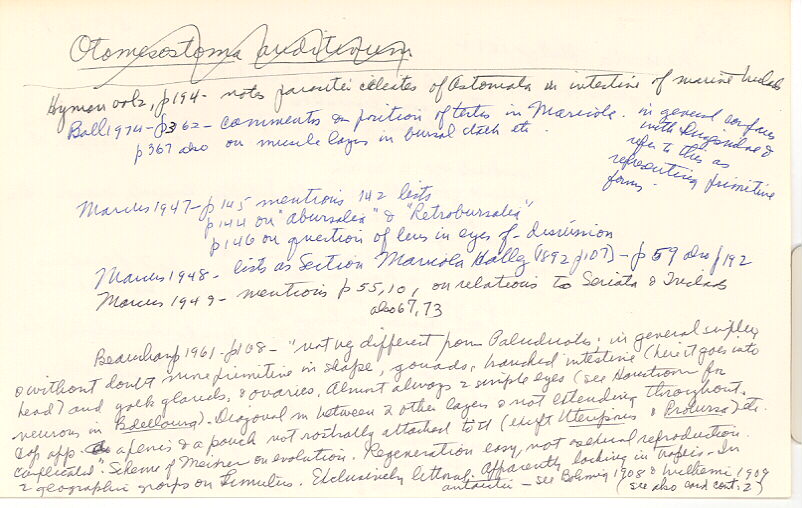 Otomesostoma auditivum
Hyman p194 - notes parasitic ciliates of Astomata in intestine of marine triclads
Ball 1974 - p362 - comments on position of testes in Maricola. in general confers
p367 also on muscle layers in bursal stalk etc. with &
refers to this as
representing primitive
forms.
Marcus 1947 - p145 mentions 142 lists
p144 on "abursalia" & "Retrobursalia"
p146 on question of lens in eyes of - discussion
Marcus 1948 - lists as Section Maricola Hallez (1892 p107) - p59 also p192
Marcus 1949 - mentions p55, 10, on relations to Seriata & Triclads
also 67, 73
Beauchamp 1961 - p108 - "not very different from Paludicoles; in general simpler
& without doubt more primitive in shape, gonads, branched intestine (here it goes into
head) and yolk glands, & ovaries. Almost always 2 simple eyes (see for
neurons in Bdelloura). Diagonal m between 2 other layers & not extending throughout.
Cop app a penis & a pouch not rostrally attached to it (except Uteriporus & ) etc.
complicated". Scheme of Meixner on evolution. Regeneration easy, not asexual reproduction.
2 geographic groups on Limulus. Exclusively littoral. Apparently lacking in tropics - In
antarctic - see Böhmig 1908 & Wilhelmi 1909
(see also card cont. 2)